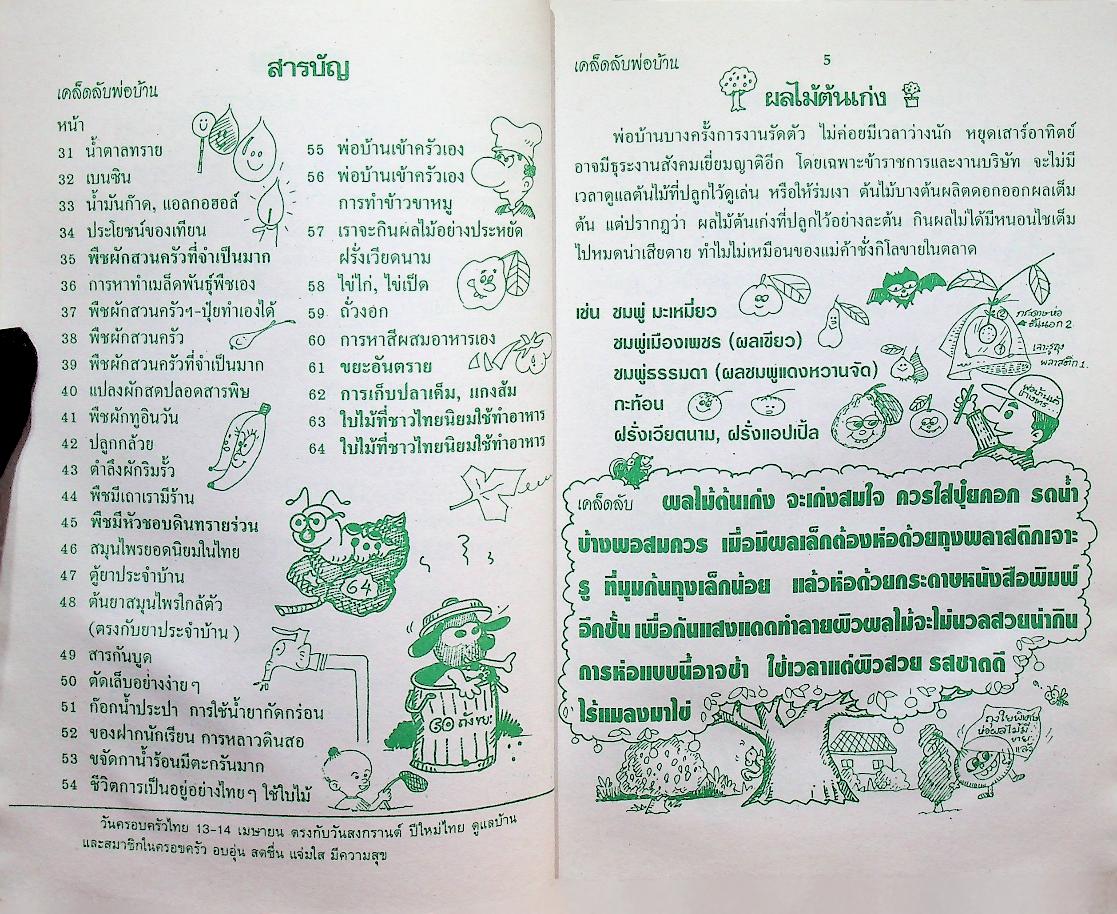 สารบัญ
เคล็ดลับพ่อบ้าน
หน้า
31 น้ำตาลทราย
32 เบนซิน
33 น้ำมันก๊าด, แอลกอฮอล์
34 ประโยชน์ของเทียน
35 พืชผักสวนครัวที่จำเป็นมาก
36 การหาทำเมล็ดพันธุ์พืชเอง
37 พืชผักสวนครัวฯ-ปุ๋ยทำเองได้
38 พืชผักสวนครัว
39 พืชผักสวนครัวที่จำเป็นมาก
40 แปลงผักสดปลอดสารพิษ
41 พืชผักทูอินวัน
42 ปลูกกล้วย
43 ตำลึงผักริมรั้ว
44 พืชมีเถาเรามีร้าน
45 พืชมีหัวชอบดินทรายร่วน
46 สมุนไพรยอดนิยมในไทย
47 ตู้ยาประจำบ้าน
48 ต้นยาสมุนไพรใกล้ตัว
(ตรงกับยาประจำบ้าน)
49 สารกันบูด
50 ตัดเล็บอย่างง่ายๆ
51 ก๊อกน้ำประปา การใช้น้ำยากัดกร่อน
52 ของฝากนักเรียน การหลาวดินสอ
53 ขจัดกาน้ำร้อนมีตะกรันมาก
54 ชีวิตการเป็นอยู่อย่างไทยๆ ใช้ใบไม้
55 พ่อบ้านเข้าครัวเอง
56 พ่อบ้านเข้าครัวเอง
การทำข้าวขาหมู
57 เราจะกินผลไม้อย่างประหยัด
ฝรั่งเวียดนาม
58 ไข่ไก่, ไข่เป็ด
59 ถั่วงอก
60 การหาสีผสมอาหารเอง
61 ขยะอันตราย
62 การเก็บปลาเค็ม, แกงส้ม
63 ใบไม้ที่ชาวไทยนิยมใช้ทำอาหาร
64 ใบไม้ที่ชาวไทยนิยมใช้ทำอาหาร
64
50 ถังขยะ
วันครอบครัวไทย 13-14 เมษายน ตรงกับวันสงกรานต์ ปีใหม่ไทย ดูแลบ้าน
และสมาชิกในครอขครัว อบอุ่น สดชื่น แจ่มใส มีความสุข
เคล็ดลับพ่อบ้าน
5
ผลไม้ต้นเก่ง
พ่อบ้านบางครั้งการงานรัดตัว ไม่ค่อยมีเวลาว่างนัก หยุดเสาร์อาทิตย์
อาจมีธุระงานสังคมเยี่ยมญาติอีก โดยเฉพาะข้าราชการและงานบริษัท จะไม่มี
เวลาดูแลต้นไม้ที่ปลูกไว้ดูเล่น หรือให้ร่มเงา ต้นไม้บางต้นผลิตดอกออกผลเต็ม
ต้น แต่ปรากฏว่า ผลไม้ต้นเก่งที่ปลูกไว้อย่างละต้น กินผลไม่ได้มีหนอนไชเต็ม
ไปหมดน่าเสียดาย ทำไมไม่เหมือนของแม่ค้าชั่งกิโลขายในตลาด
เช่น ชมพู่ มะเหมี่ยว
ชมพู่เมืองเพชร (ผลเขียว)
ชมพู่ธรรมดา (ผลชมพู่แดงหวานจัด)
กะท้อน
ฝรั่งเวียตนาม, ฝรั่งแอปเปิ้ล
กระดาษห่อ
ชั้นนอก 2
เจาะรูถุง
พลาสติก 1.
เคล็ดลับ ผลไม้ต้นเก่ง จะเก่งสมใจ ควรใส่ปุ๋ยคอก รดน้ำ
บ้างพอสมควร เมื่อมีผลเล็กต้องห่อด้วยถุงพลาสติกเจาะ
รู ที่มุมก้นถุงเล็กน้อย แล้วห่อด้วยกระดาษหนังสือพิมพ์
อีกชั้น เพื่อกันแสงแดดทำลายผิวผลไม้จะไม่นวลสวยน่ากิน
การห่อแบบนี้อาจช้า ใช้เวลาแต่ผิวสวย รสชาดดี
ไร้แมลงมาไข่
ถุงใยพิเศษ
ห่อผลไม้มี
ขาย
แล้ว